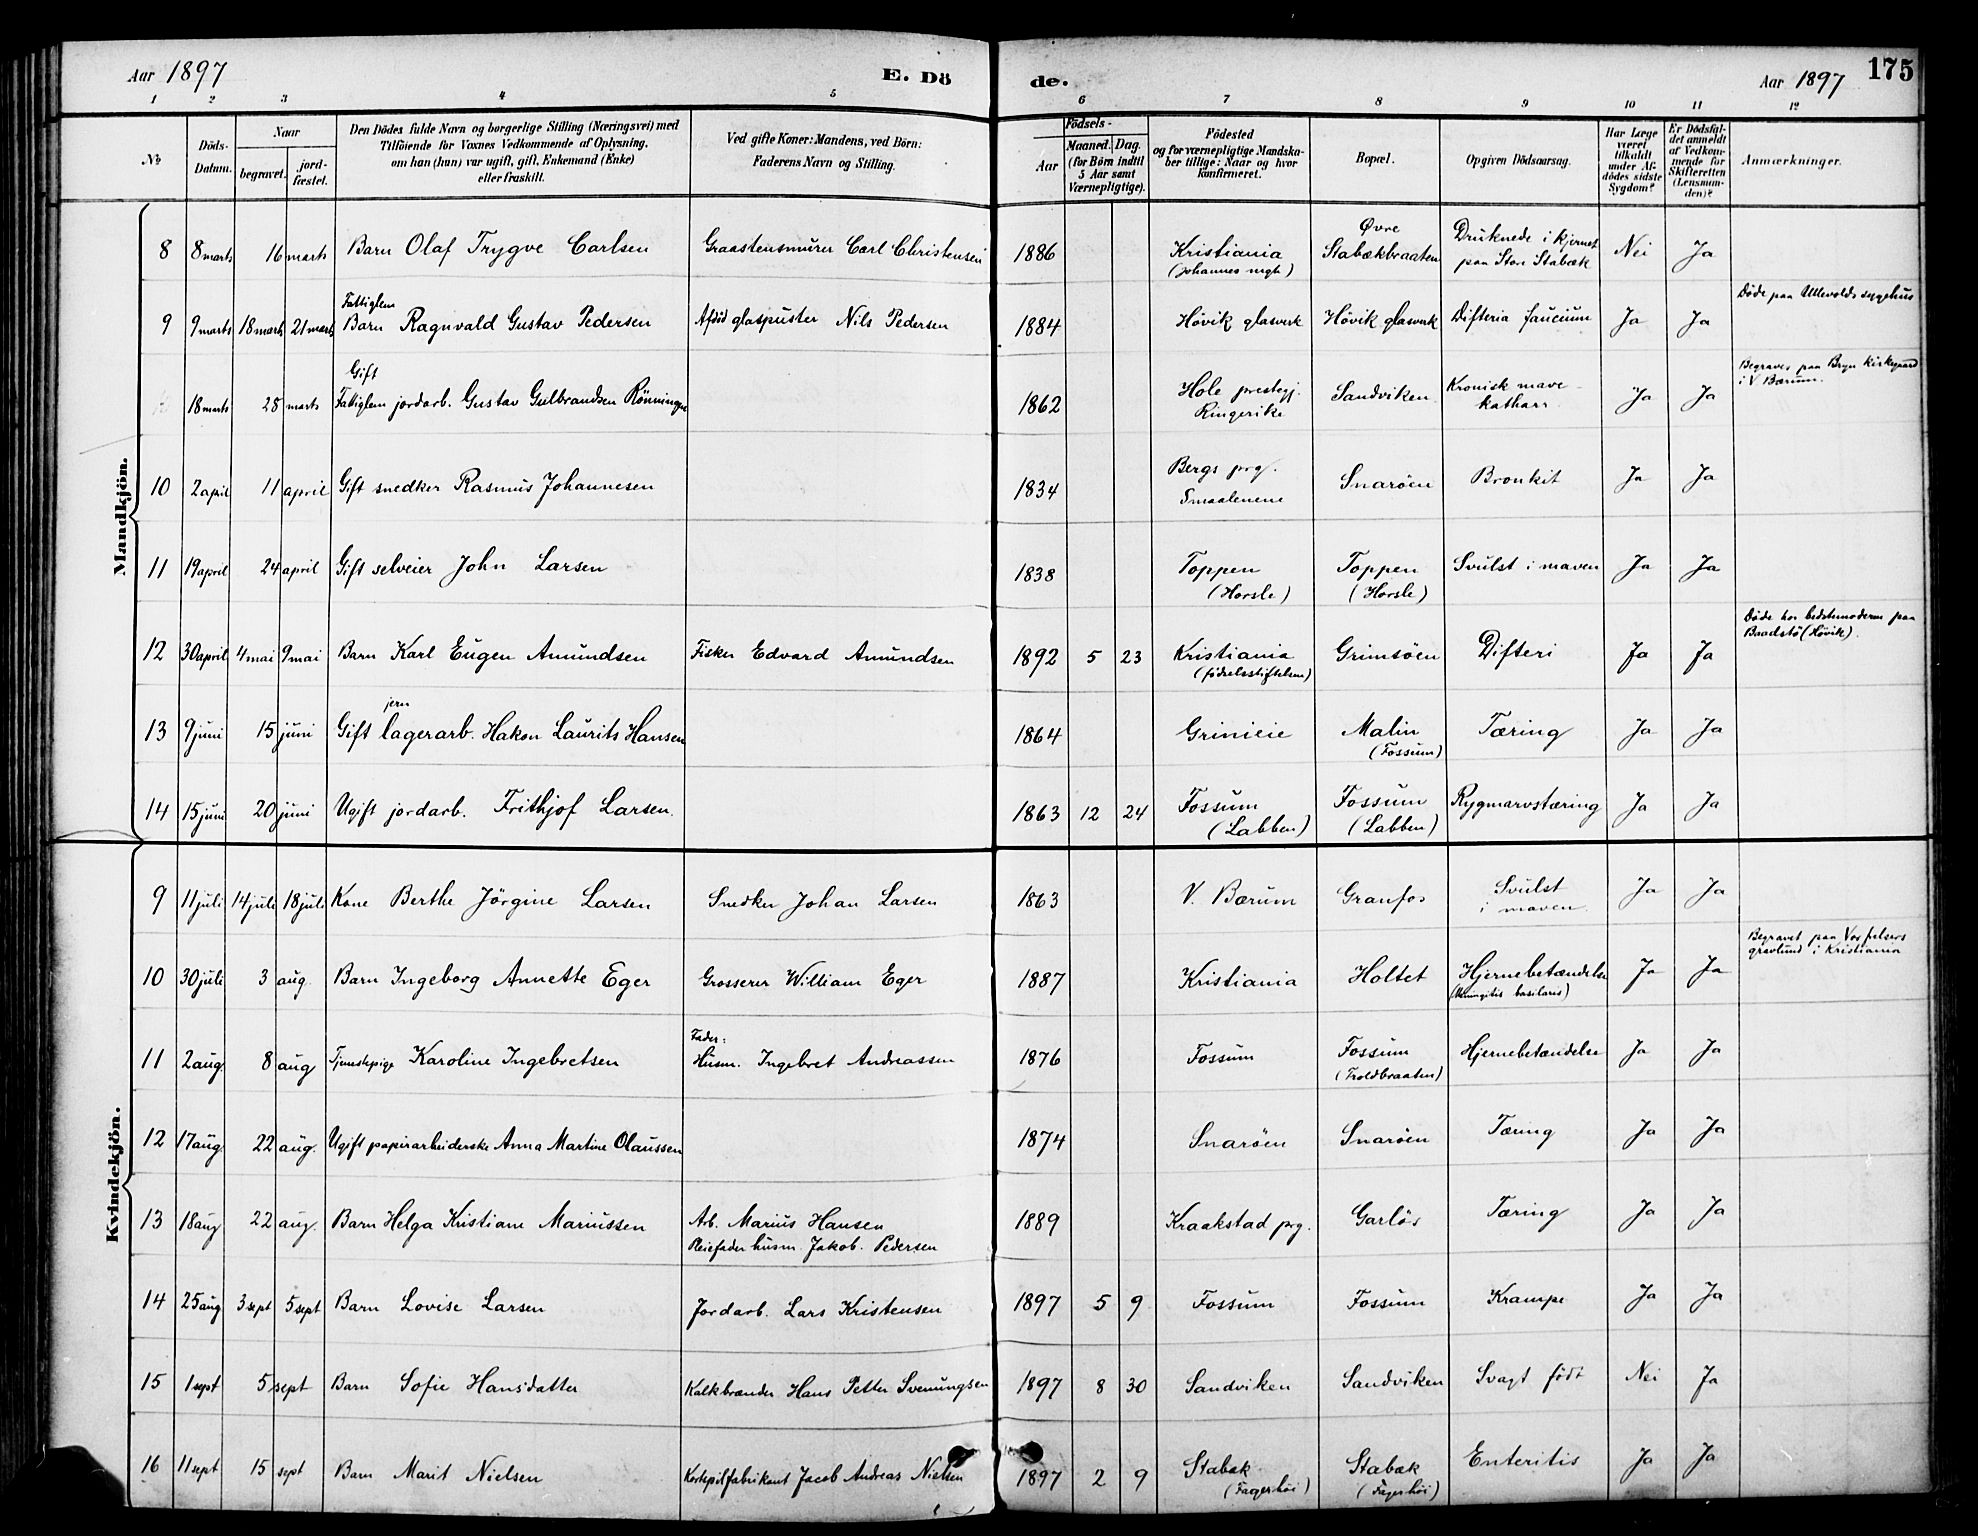 Aar 1897 E. Dö de. Aar 1897 175
1 2 3 4 5 6 7 8 9 10 11 12
No Döds-Datum. Naar begravet. jord-fæstet. Den Dödes fulde Navn og borgerlige Stilling (Næringsvei) med Tilföiende for Voxnes Vedkommende af Oplysning, om han (hun) var ugift, gift, Enkemand (Enke) eller fraskilt. Ved gifte Koner: Mandens, ved Börn: Faderens Navn og Stilling. Födsels- Aar Maaned. Dag. (for Börn indtil 5 Aar samt Værnepligtige). Födested og for værnepligtige Mandska-ber tillige: Naar og hvor konfirmeret. Bopæl. Opgiven Dödsaarsag. Har Læge været tilkaldt under Af-dödes sidste Sygdom? Er Dödsfal-det anmeldt af Vedkom-mende for Skifteretten (Lensman-den)? Anmærkninger.
Mandkjön.
8 8 marts 16 marts Barn Olaf Trygve Carlsen Graastensmurer Carl Christensen 1886 Kristiania (Johannes mgh) Øvre Stabækbraaten Druknede i kjernet paa Store Stabæk Nei Ja
9 9 marts 18 marts 21 marts Fattiglem Barn Ragnvald Gustav Pedersen Afdöd glaspuster Nils Pedersen 1884 Hövik glasverk Hövik glasverk Difteria faucium Ja Ja Døde paa Ullevolds sygehus
18 marts 28 marts Gift Fattiglem jordarb. Gustav Gulbrandsen Rönningen 1862 Hole prestegj. Ringerike Sandviken Kronisk mave-katharr. Ja Ja Begraves paa Bryn kirkegaard i V Bærum.
10 2 april 11 april Gift snedker Rasmus Johannesen 1834 Bergs prg. Smaalenene Snaröen Bronkit Ja Ja
11 19 april 24 april Gift selveier John Larsen 1838 Toppen (Horsle) Toppen (Horsle) Svulst i maven Ja Ja
12 30 april 4 mai 9 mai Barn Karl Eugen Amundsen Fisker Edvard Amundsen 1892 5 23 Kristiania (födselsstiftelsen) Grimsöen Difteri Ja Ja Døde hos bedstemoderen paa Baadstö (Hövik).
13 9 juni 15 juni Gift jern lagerarb. Hakon Laurits Hansen 1864 Grinieie Malin (Fossum) Tæring Ja Ja
14 15 juni 20 juni Ugift jordarb. Frithjof Larsen. 1863 12 24 Fossum (Labben) Fossum (Labben) Rygmarvstæring Ja Ja
Kvindekjön.
9 11 juli 14 juli 18 juli Kone Berthe Jörgine Larsen Snedker Johan Larsen 1863 V. Bærum Granfos Svulst i maven Ja Ja
10 30 juli 3 aug. Barn Ingeborg Annette Eger Grosserer William Eger 1887 Kristiania Holtet Hjernebetændelse (Meningitis basilaris) Ja Ja Begravet paa Vor frelsers gravlund i Kristiania
11 2 aug 8 aug Tjenestepige Karoline Ingebretsen Fader: Husm. Ingebret Andreassen 1876 Fossum Fossum (Troldbraaten) Hjernebetændelse Ja Ja
12 17 aug. 22 aug. Ugift papirarbeiderske Anna Martine Olaussen 1874 Snaröen Snaröen Tæring Ja Ja
13 18 aug 22 aug. Barn Helga Kristiane Mariussen Arb. Marius Hansen Pleiefader husm. Jakob. Pedersen 1889 Kraakstad prg. Garlös Tæring Ja Ja
14 25 aug 3 sept 5 sept Barn Lovise Larsen Jordarb. Lars Kristensen 1897 5 9 Fossum Fossum Krampe Ja Ja
15 1 sept 5 sept Barn Sofie Hansdatter Kalkbrænder Hans Petter Svenungsen 1897 8 30 Sandviken Sandviken Svagt födt Nei Ja
16 11 sept 15 sept Barn Marit Nielsen Kortspilfabrikant Jacob Andreas Nielsen 1897 2 9 Stabæk (Fagerhöi) Stabæk (Fagerhöi) Enteritis Ja Ja